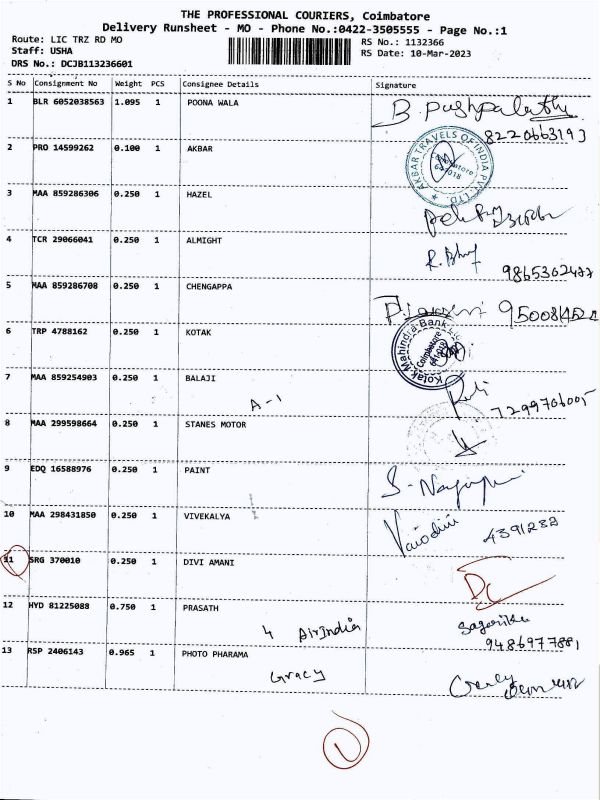 THE PROFESSIONAL COURIERS, Coimbatore
Delivery Runsheet - MO - Phone No.:0422-3505555 - Page No.:1
Route: LIC TRZ RD MO RS No.: 1132366
Staff: USHA RS Date: 10-Mar-2023
DRS No.: DCJB113236601
S No Consignment No Weight PCS Consignee Details Signature
1 BLR 6052038563 1.095 1 POONA WALA B. Pushpalatha
8220663193
2 PRO 14599262 0.100 1 AKBAR AKBAR TRAVELS OF INDIA PVT. LTD
3 MAA 859286306 0.250 1 HAZEL
4 TCR 29066041 0.250 1 ALMIGHT
9865302477
5 MAA 859286708 0.250 1 CHENGAPPA
6 TRP 4788162 0.250 1 KOTAK Kotak Mahindra Bank Coimbatore
7 MAA 859254903 0.250 1 BALAJI
A-1 7299706005
8 MAA 299598664 0.250 1 STANES MOTOR
9 EDQ 16588976 0.250 1 PAINT
10 MAA 298431850 0.250 1 VIVEKALYA
4391232
11 SRG 370010 0.250 1 DIVI AMANI DC
12 HYD 81225088 0.750 1 PRASATH
4 AirIndia Sagarika
9486977881
13 RSP 2406143 0.965 1 PHOTO PHARAMA
Gracy